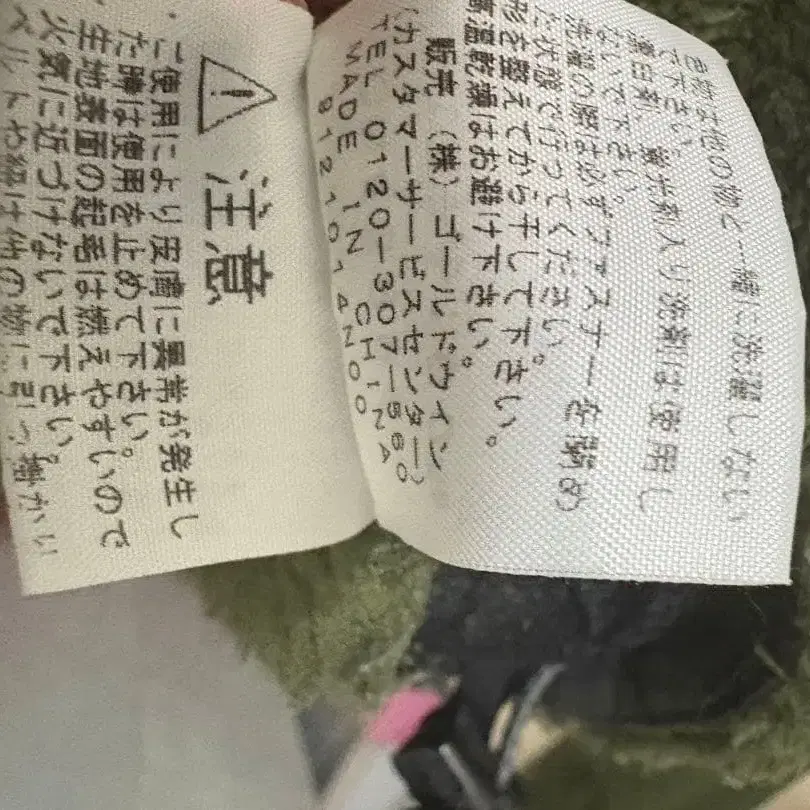 色物は他の物と一緒に洗濯しない
で下さい。
漂白剤、蛍光剤入り洗剤は使用し
ないで下さい。
洗濯の際は必ずファスナーを閉め
た状態で行ってください。
形を整えてから干して下さい。
高温乾燥はお避け下さい。
販売 (株)ゴールドウイン
(カスタマーサービスセンター)
TEL 0120-307-560
MADE IN CHINA
8121014N00
注意
ご使用により皮膚に異常が発生し
た時は使用を止めて下さい。
生地表面の起毛は燃えやすいので
火気に近づけないで下さい。
ベルトや紐は他の物に引っ掛かい